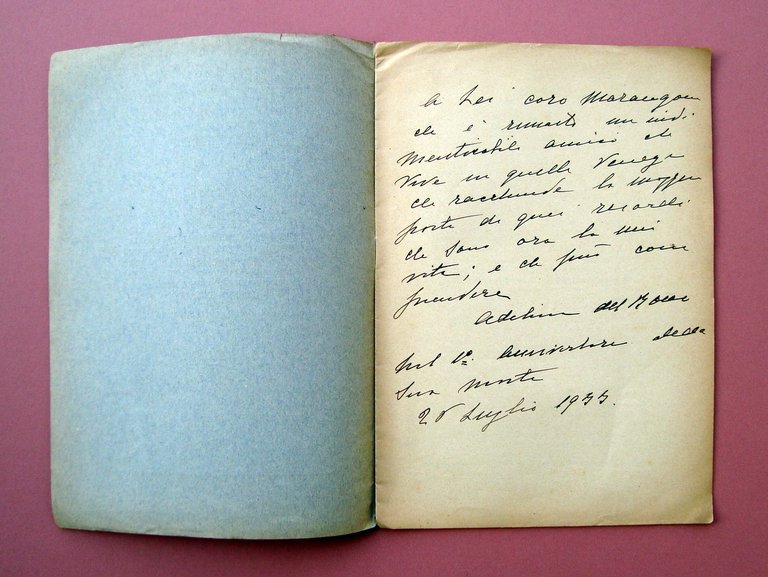 A Lei caro Marangoni
che è rimasto un indi
menticabile amico che
vive in quella Venezia
che racchiude la maggior
parte di quei ricordi
che sono ora la mia
vita; e che può com
prendere
Adelina del
nel 1º anniversario della
Sua morte
Luglio 1933.